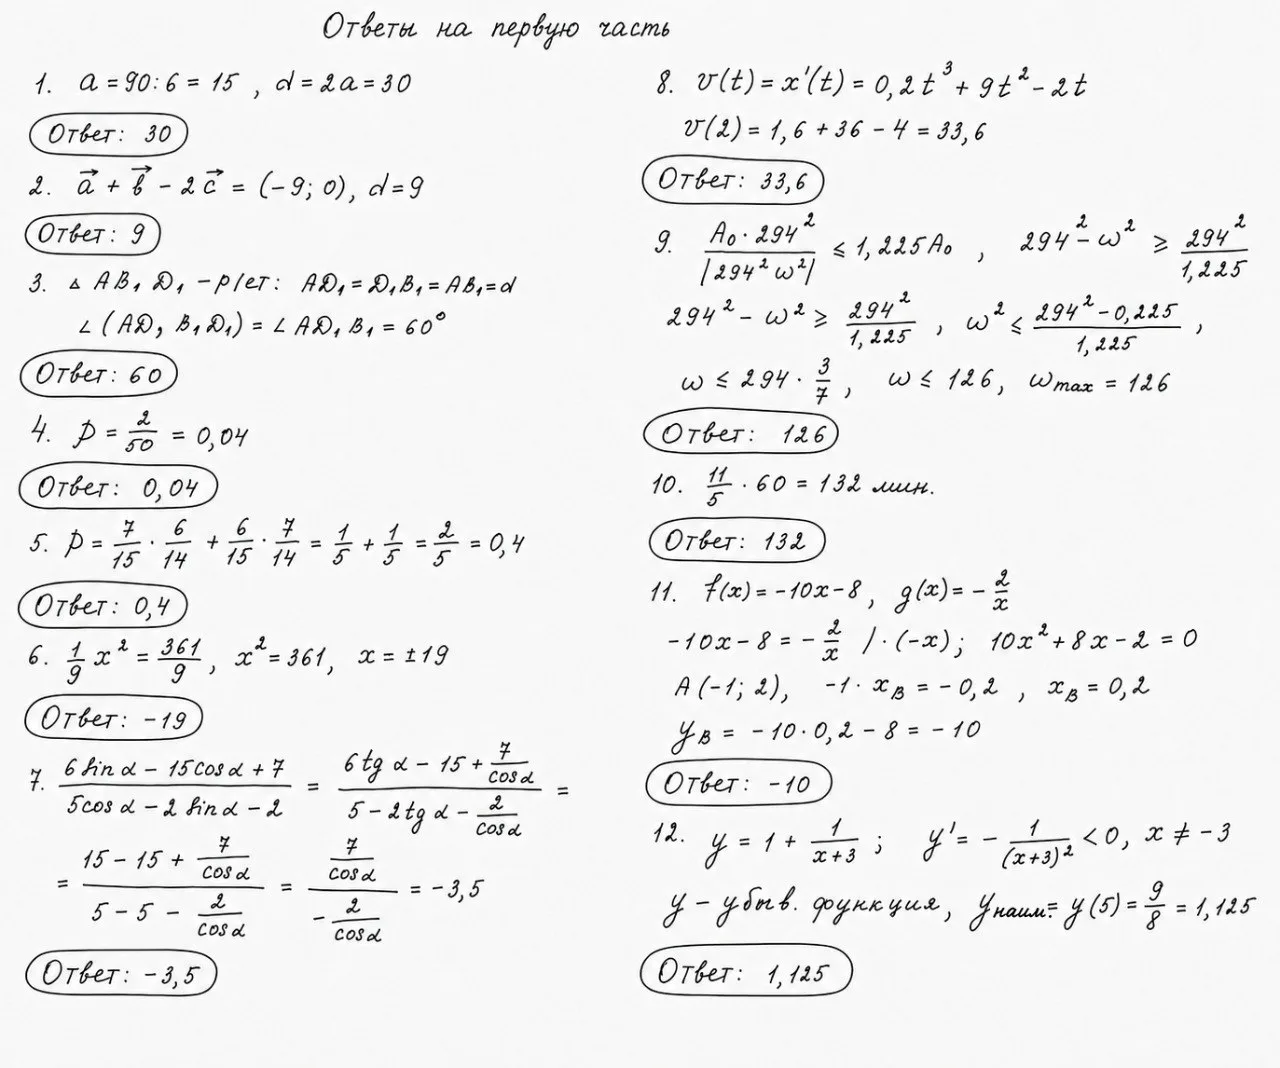 Ответы на первую часть
1. a = 90 : 6 = 15 , d = 2a = 30
Ответ: 30
2. a⃗ + b⃗ - 2c⃗ = (-9; 0), d = 9
Ответ: 9
3. △ AB₁D₁ - р/ст: AD₁ = D₁B₁ = AB₁ = d
∠(AD, B₁D₁) = ∠AD₁B₁ = 60°
Ответ: 60
4. p = 2/50 = 0,04
Ответ: 0,04
5. p = 7/15 · 6/14 + 6/15 · 7/14 = 1/5 + 1/5 = 2/5 = 0,4
Ответ: 0,4
6. 1/9 x² = 361/9 , x² = 361, x = ±19
Ответ: -19
7. (6 sin α - 15 cos α + 7)/(5 cos α - 2 sin α - 2) = (6 tg α - 15 + 7/cos α)/(5 - 2 tg α - 2/cos α) =
= (15 - 15 + 7/cos α)/(5 - 5 - 2/cos α) = (7/cos α)/(- 2/cos α) = -3,5
Ответ: -3,5
8. v(t) = x'(t) = 0,2t³ + 9t² - 2t
v(2) = 1,6 + 36 - 4 = 33,6
Ответ: 33,6
9. (A₀ · 294²)/|294² ω²| ≤ 1,225A₀ , 294² - ω² ≥ 294²/1,225
294² - ω² ≥ 294²/1,225 , ω² ≤ (294² - 0,225)/1,225 ,
ω ≤ 294 · 3/7 , ω ≤ 126, ωmax = 126
Ответ: 126
10. 11/5 · 60 = 132 мин.
Ответ: 132
11. f(x) = -10x - 8 , g(x) = - 2/x
-10x - 8 = - 2/x / · (-x) ; 10x² + 8x - 2 = 0
A(-1; 2), -1 · x_B = -0,2 , x_B = 0,2
y_B = -10 · 0,2 - 8 = -10
Ответ: -10
12. y = 1 + 1/(x+3) ; y' = - 1/(x+3)² < 0, x ≠ -3
y - убыв. функция, yнаим. = y(5) = 9/8 = 1,125
Ответ: 1,125